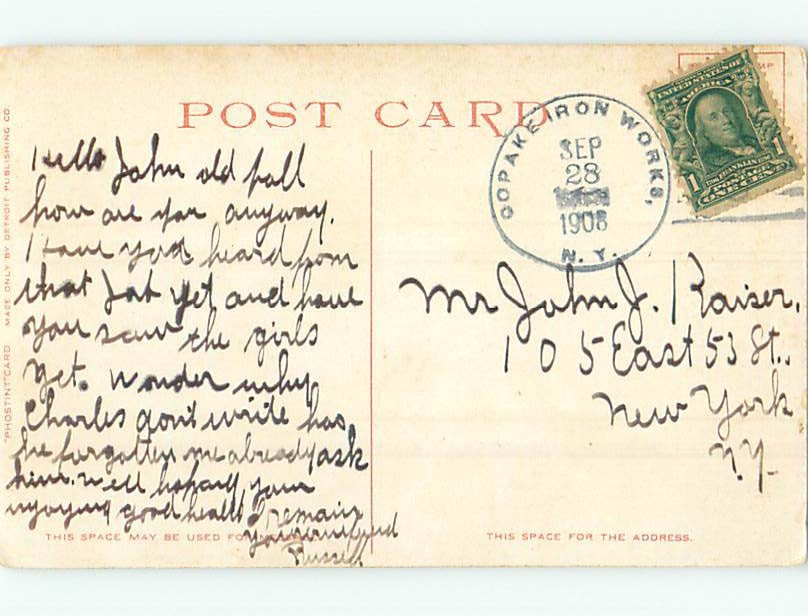 POST CARD
COPAKE IRON WORKS,
SEP
28
1908
N. Y.
UNITED STATES OF
AMERICA
1 FRANKLIN 1
POSTAGE
ONE CENT
"PHOSTINT" CARD MADE ONLY BY DETROIT PUBLISHING CO.
Hello John old pall
how are you anyway.
Have you heard from
that Job yet and have
you saw the girls
yet. Wonder why
Charles don't write has
he forgotten me already ask
him. Well hoping your
njoying good health I remain
your friend
Russell
Mr John J. Kaiser.
105 East 53 St.
New York
N.Y.
THIS SPACE MAY BE USED FOR
THIS SPACE FOR THE ADDRESS.